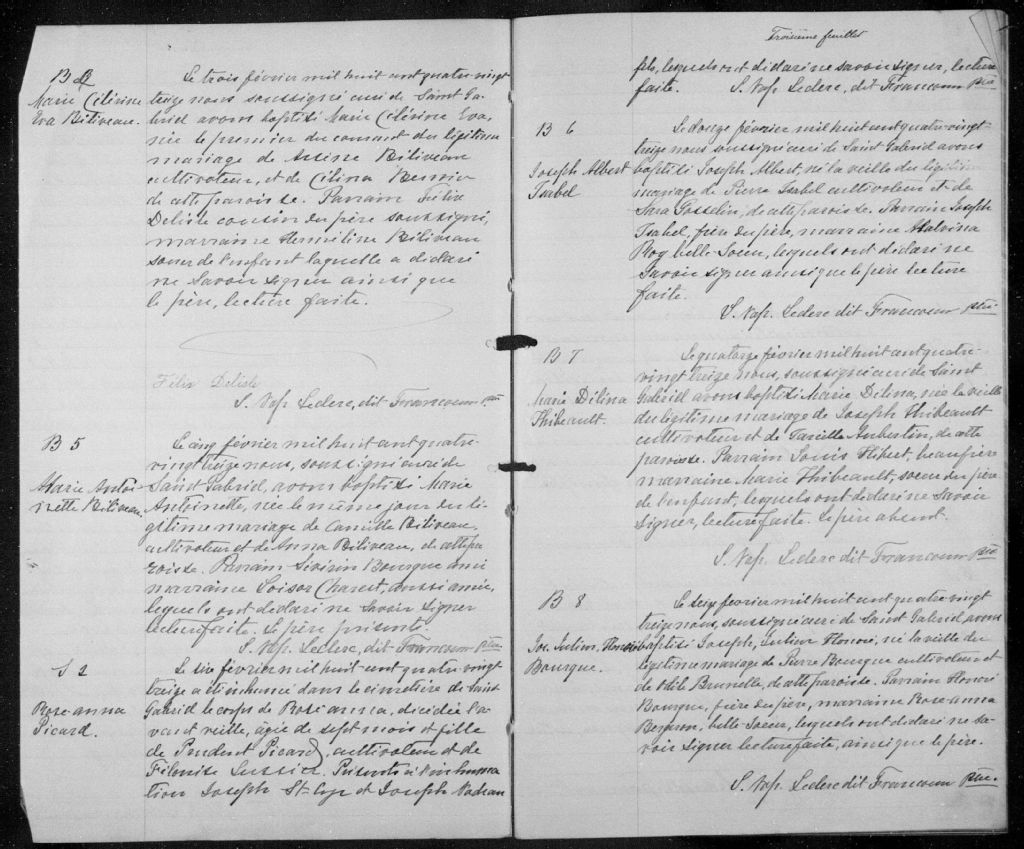 B 4
Marie Célérine
Eva Béliveau.
Le trois février mil huit cent quatre-vingt
treize nous soussigné curé de Saint Ga-
briel avons baptisé Marie Célérine Eva,
née le premier du courant du légitime
mariage de Arsène Béliveau
cultivateur, et de Célina Bernier
de cette paroisse. Parrain Félix
Delisle cousin du père soussigné,
marraine Herméline Béliveau
soeur de l'enfant laquelle a déclaré
ne savoir signer ainsi que
le père, lecture faite.
Félix Delisle
S. Nap. Leclerc, dit Francoeur Ptre
B 5
Marie Antoi-
nette Béliveau.
Le cinq février mil huit cent quatre-
vingt treize nous, soussigné curé de
Saint Gabriel, avons baptisé Marie
Antoinette, née le même jour du lé-
gitime mariage de Camille Béliveau,
cultivateur et de Anna Béliveau, de cette pa-
roisse. Parrain Sévérin Bourque ami
marraine Loisor Charest, aussi amie,
lequels ont déclaré ne savoir signer
lecture faite. Le père présent.
S. Nap. Leclerc, dit Francoeur Ptre
S 2
Rose-anna
Picard.
Le six février mil huit cent quatre-vingt
treize a été inhumé dans le cimetière de Saint
Gabriel le corps de Rose-anna, décédée l'a-
vant veille, agée de sept mois et fille
de Prudent Picard, cultivateur et de
Filonise Lussier. Présents à l'inhuma
tion Joseph St-Cyr et Joseph Nadeau
Troisième feuillet
fils, lesquels ont déclaré ne savoir signer, lecture
faite. S. Nap. Leclerc, dit Francoeur Ptre
B 6
Joseph Albert
Isabel
Le douze février mil huit cent quatre-vingt-
treize nous soussigné curé de Saint Gabriel avons
baptisé Joseph Albert, né la veille du légitime
mariage de Pierre Isabel cultivateur et de
Sara Gosselin, de cette paroisse. Parrain Joseph
Isabel, frère du père, marraine Malvina
Roy belle-soeur, lequels ont déclaré ne
savoir signer ainsi que le père lecture
faite.
S. Nap. Leclerc dit Francoeur Ptre
B 7
Marie Délina
Thibeault.
Le quatorze février mil huit cent quatre-
vingt treize nous, soussigné curé de Saint
Gabriel avons baptisé Marie Délina, née la veille
du légitime mariage de Joseph Thibeault
cultivateur et de Tarcille Aubertin, de cette
paroisse. Parrain Louis Hébert, beau frère
marraine Marie Thibeault, soeur du père
de l'enfant, lequels ont déclaré ne savoir
signer, lecture faite. Le père absent.
S. Nap. Leclerc dit Francoeur Ptre
B 8
Jos. Julien, Honoré
Bourque.
Le seize février mil huit cent quatre vingt
treize nous, soussigné curé de Saint Gabriel avons
baptisé Joseph, Julien Honoré, né la veille du
légitime mariage de Pierre Bourque cultivateur et
de Odile Brunelle, de cette paroisse. Parrain Honoré
Bourque, frère du père, marraine Rose-anna
Bergeron, belle-soeur, lequels ont déclaré ne sa-
voir signer lecture faite, ainsi que le père.
S. Nap. Leclerc dit Francoeur Ptre.